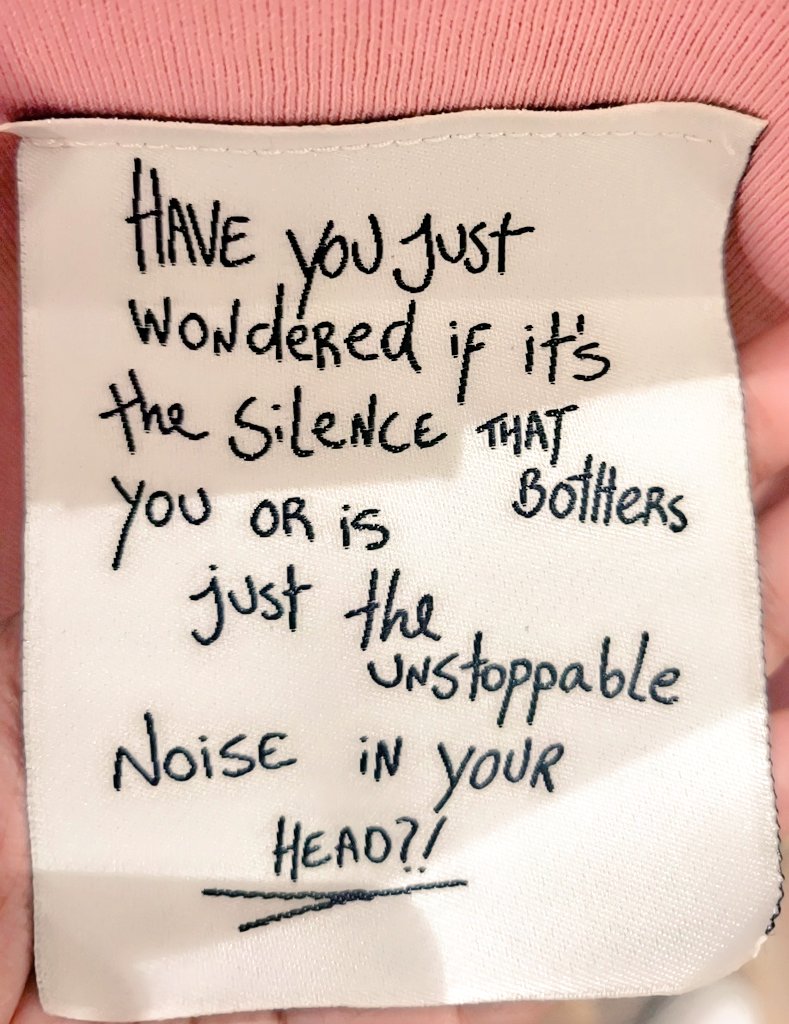 HAVE YOU JUST
WONdeRed iF it's
the SiLeNCE THAT
YOU OR is BOTHERS
just the
UNStoppable
NoiSE iN YOUR
HEAD?!